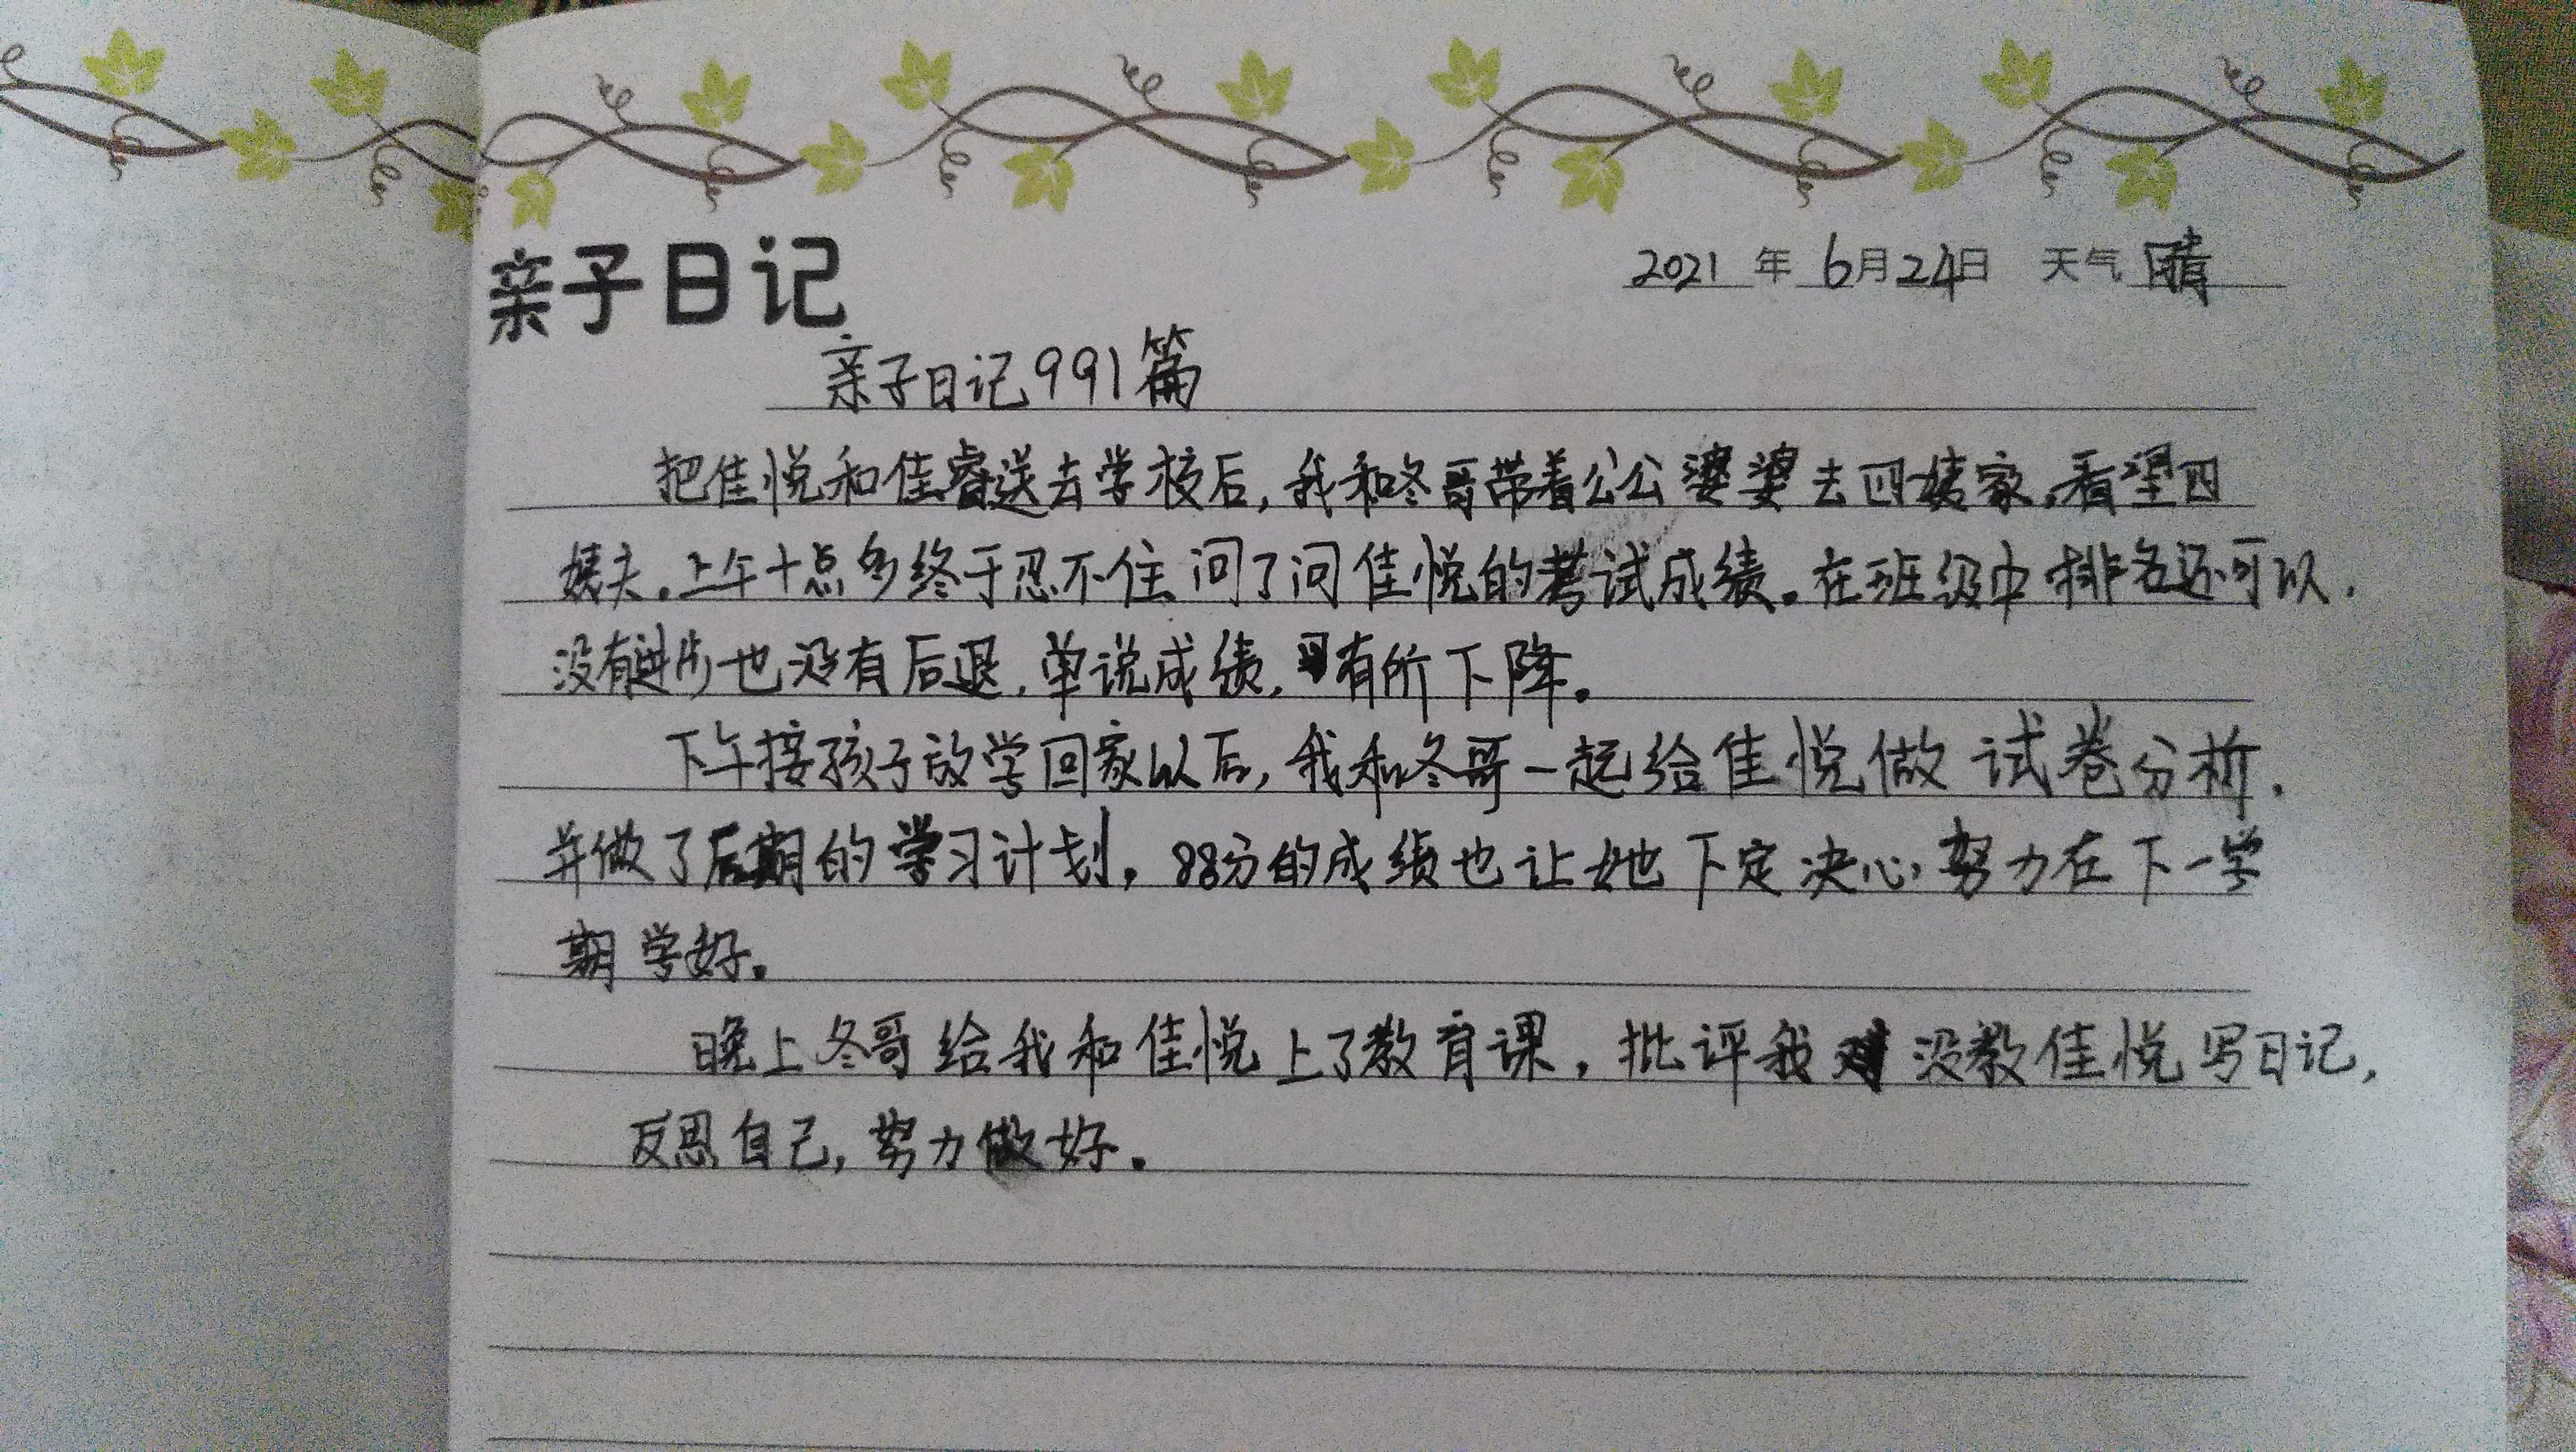 亲子日记
2021 年 6月24日 天气 晴
亲子日记991篇
把佳悦和佳睿送去学校后,我和冬哥带着公公婆婆去四姨家,看望四
姨夫.上午十点多终于忍不住问了问佳悦的考试成绩。在班级中排名还可以.
没有进步也没有后退,单说成绩,有所下降。
下午接孩子放学回家以后,我和冬哥一起给佳悦做试卷分析.
并做了后期的学习计划,88分的成绩也让她下定决心,努力在下一学
期学好。
晚上冬哥给我和佳悦上了教育课,批评我没教佳悦写日记,
反思自己,努力做好.